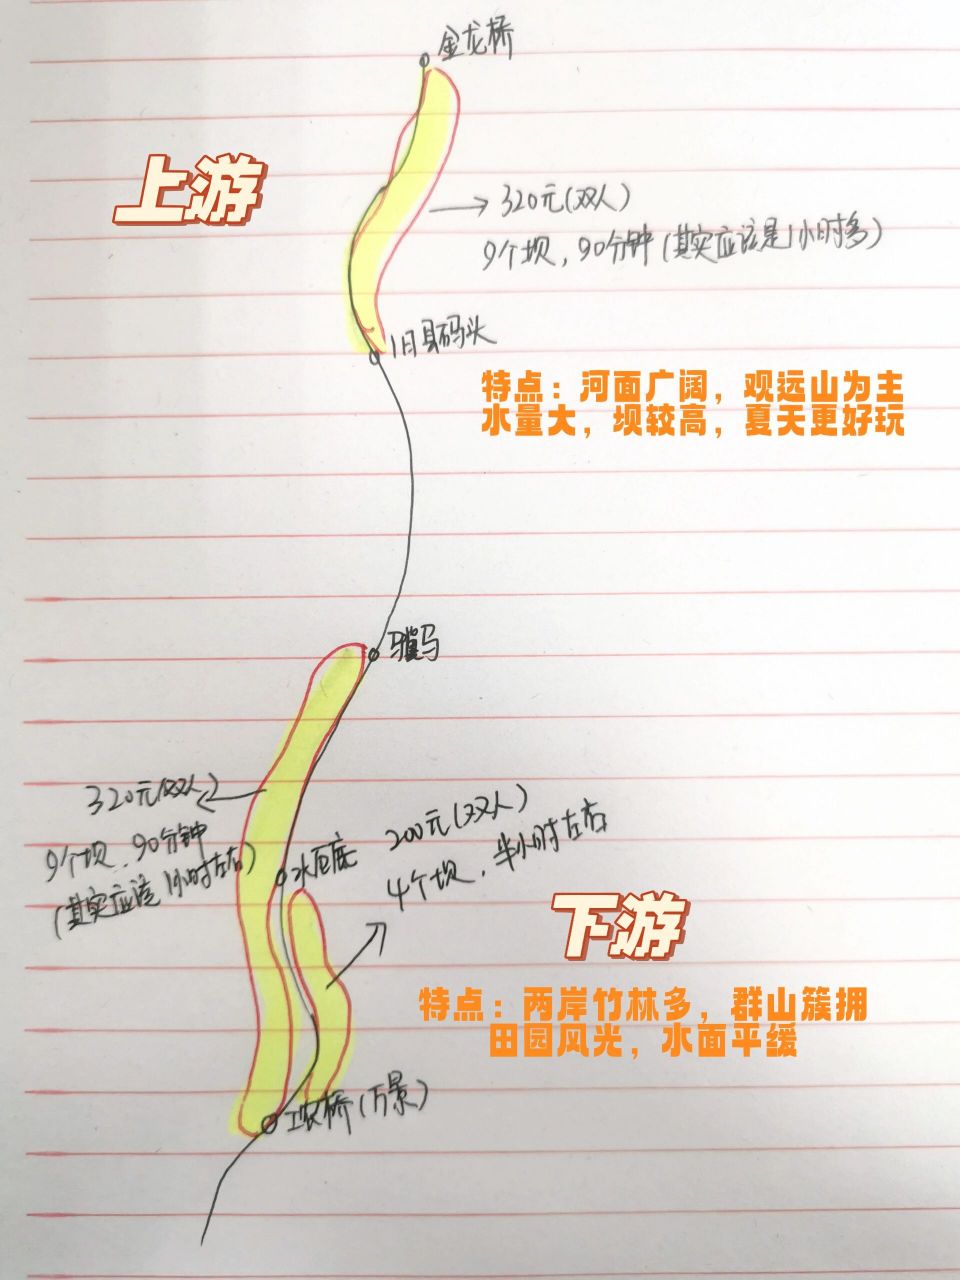 金龙桥
上游
→320元(双人)
9个坝，90分钟(其实应该是1小时多)
旧县码头
特点：河面广阔，观远山为主
水量大，坝较高，夏天更好玩
骥马
320元(双人)
9个坝，90分钟
(其实应该1小时左右)
水厄底
200元(双人)
4个坝，半小时左右
下游
特点：两岸竹林多，群山簇拥
田园风光，水面平缓
工农桥(万景)